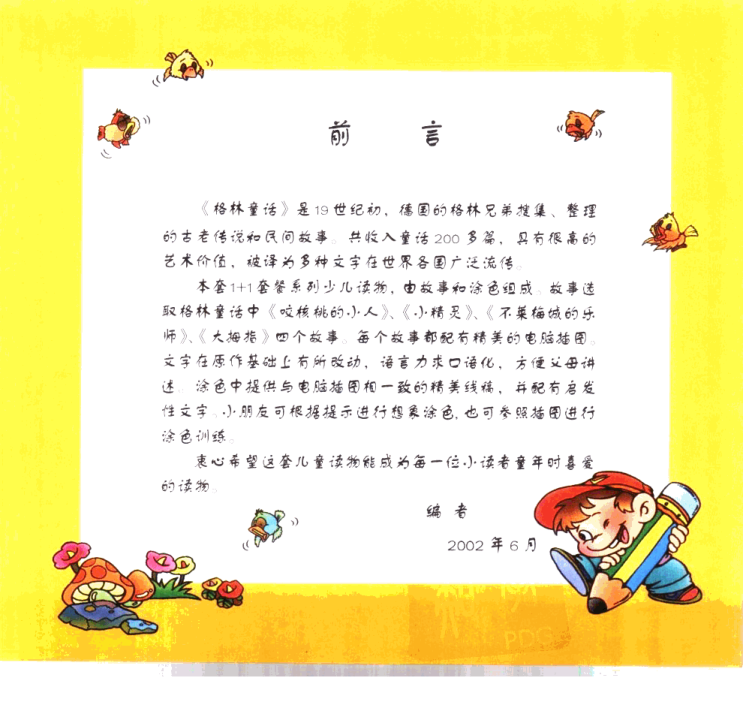 前 言
《格林童话》是19世纪初，德国的格林兄弟搜集、整理
的古老传说和民间故事。共收入童话200多篇，具有很高的
艺术价值，被译为多种文字在世界各国广泛流传。
本套1+1套餐系列少儿读物，由故事和涂色组成。故事选
取格林童话中《咬核桃的小人》、《小精灵》、《不莱梅城的乐
师》、《大拇指》四个故事。每个故事都配有精美的电脑插图。
文字在原作基础上有所改动，语言力求口语化，方便父母讲
述。涂色中提供与电脑插图相一致的精美线稿，并配有启发
性文字。小朋友可根据提示进行想象涂色，也可参照插图进行
涂色训练。
衷心希望这套儿童读物能成为每一位小读者童年时喜爱
的读物。
编 者
2002 年 6 月
PDG